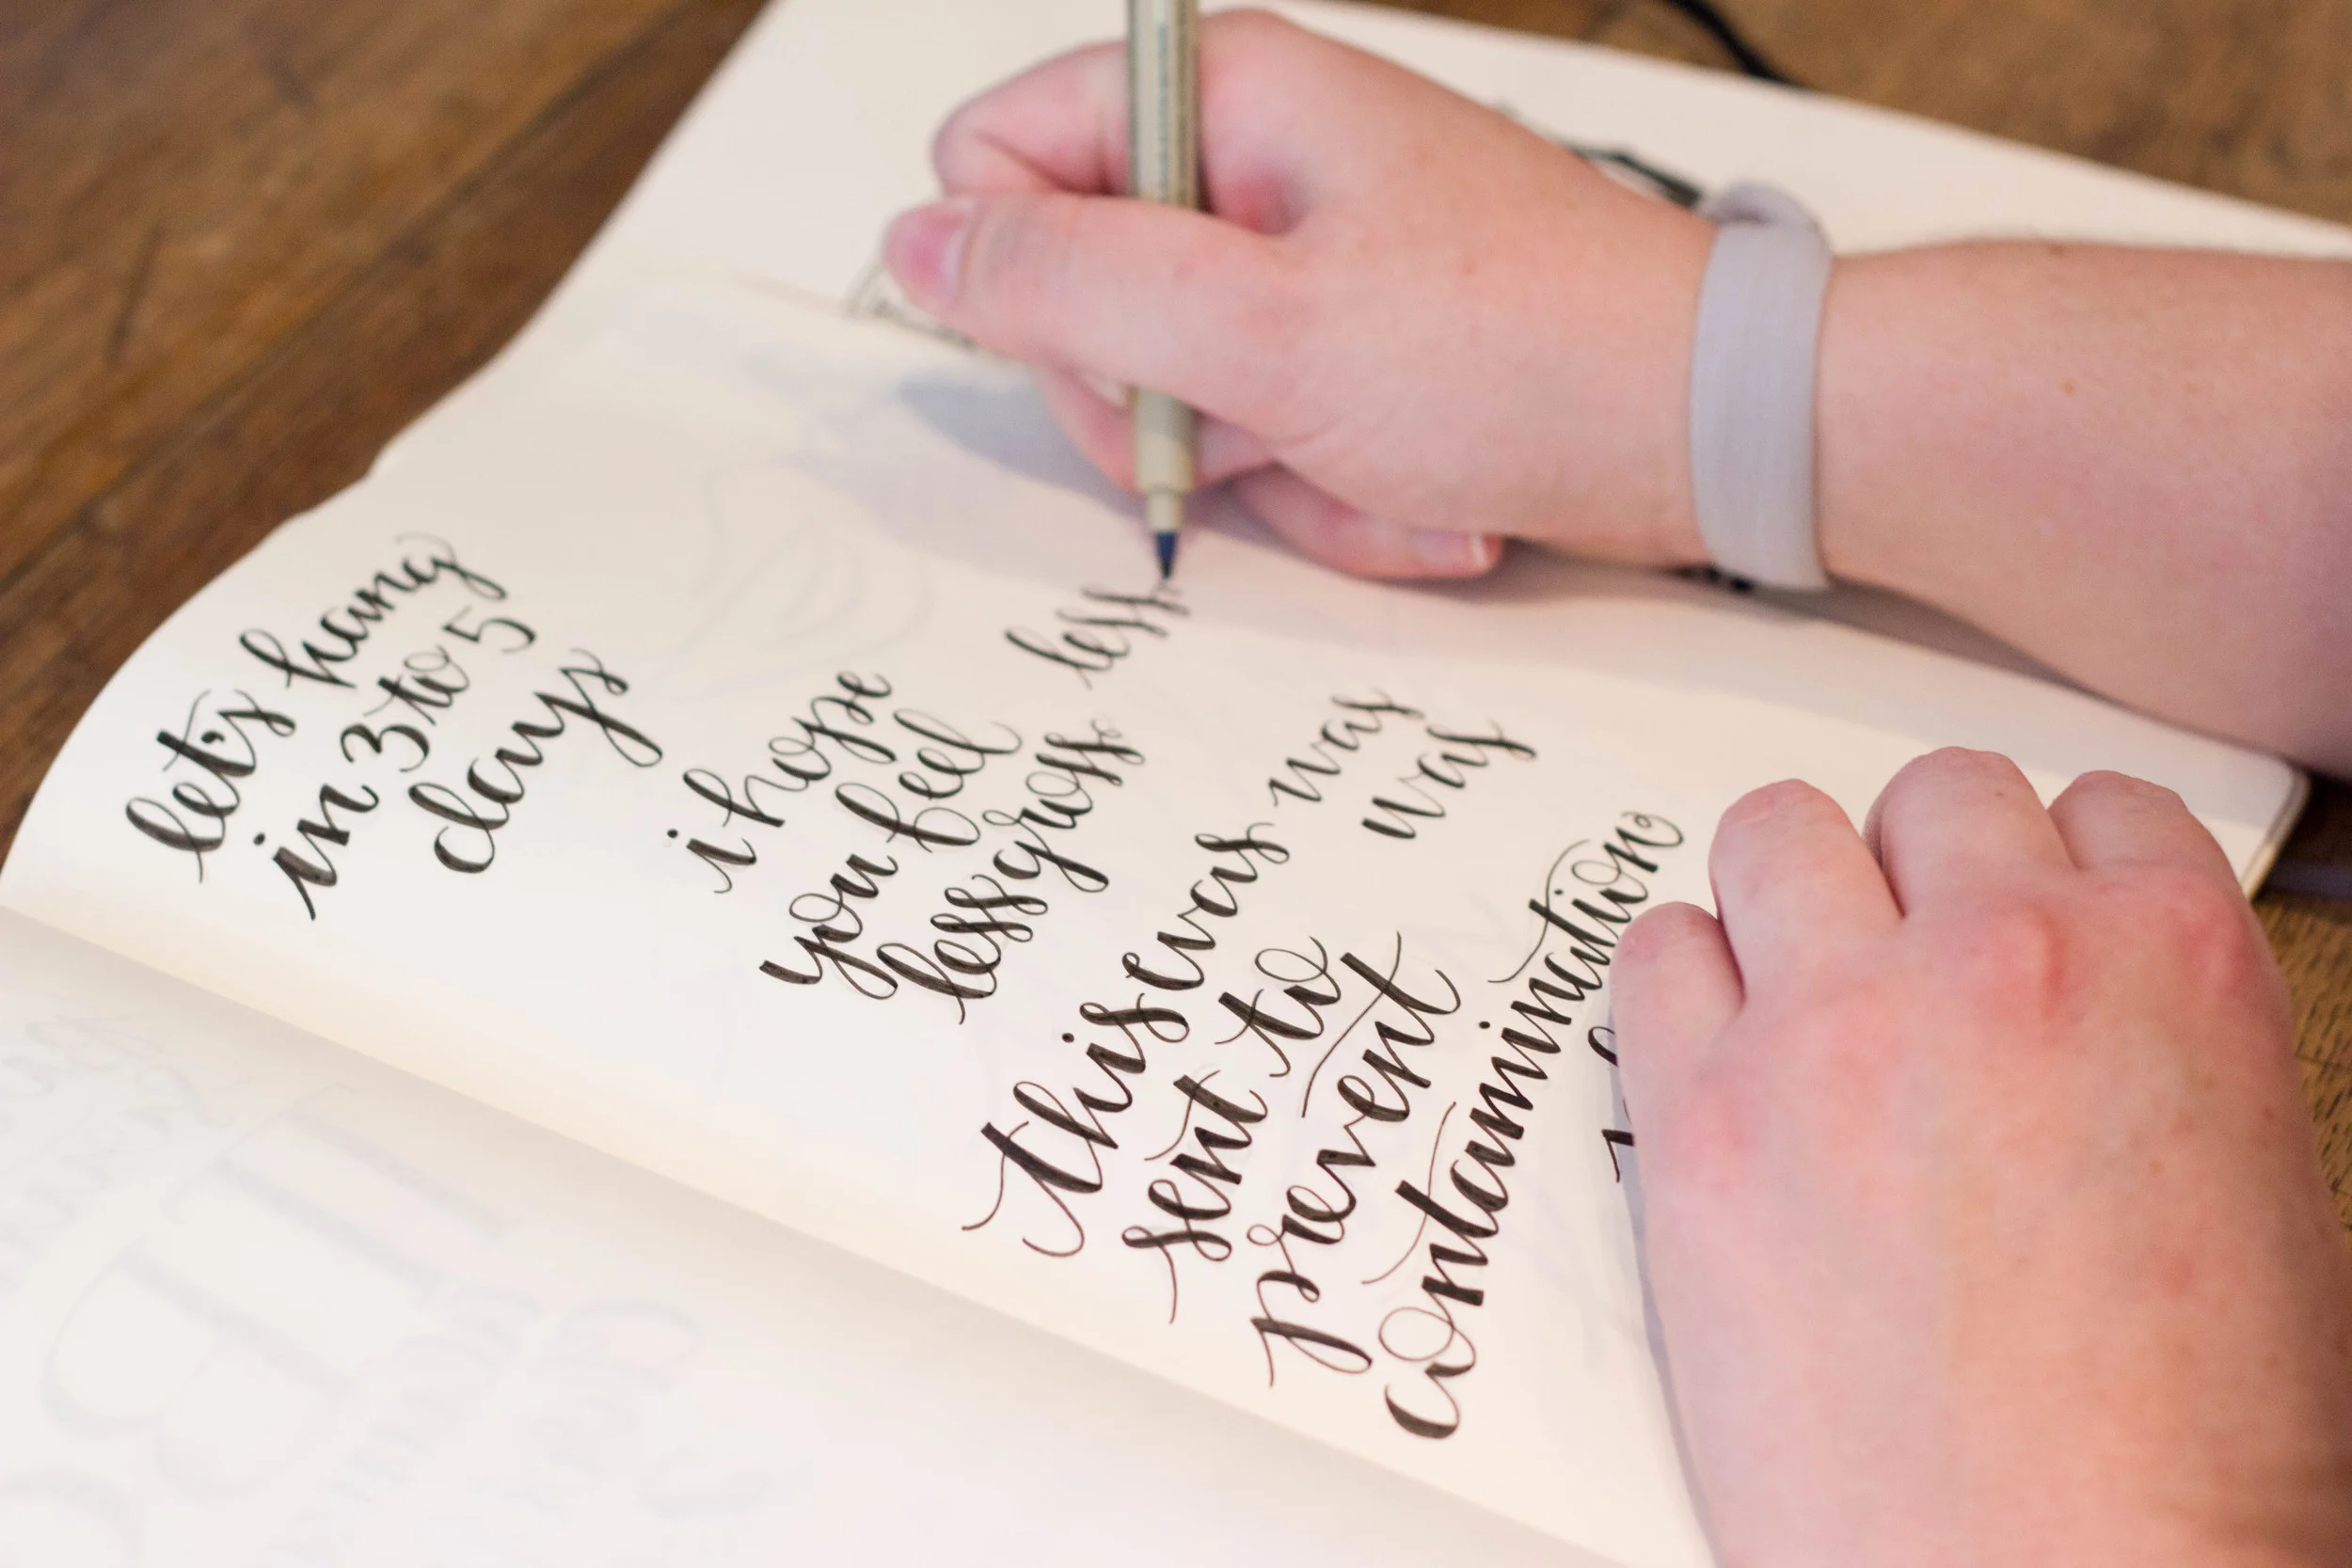 let's hang
in 3 to 5
days
i hope
you feel
less gross
less
this was
was
sent to
was
prevent
contamination